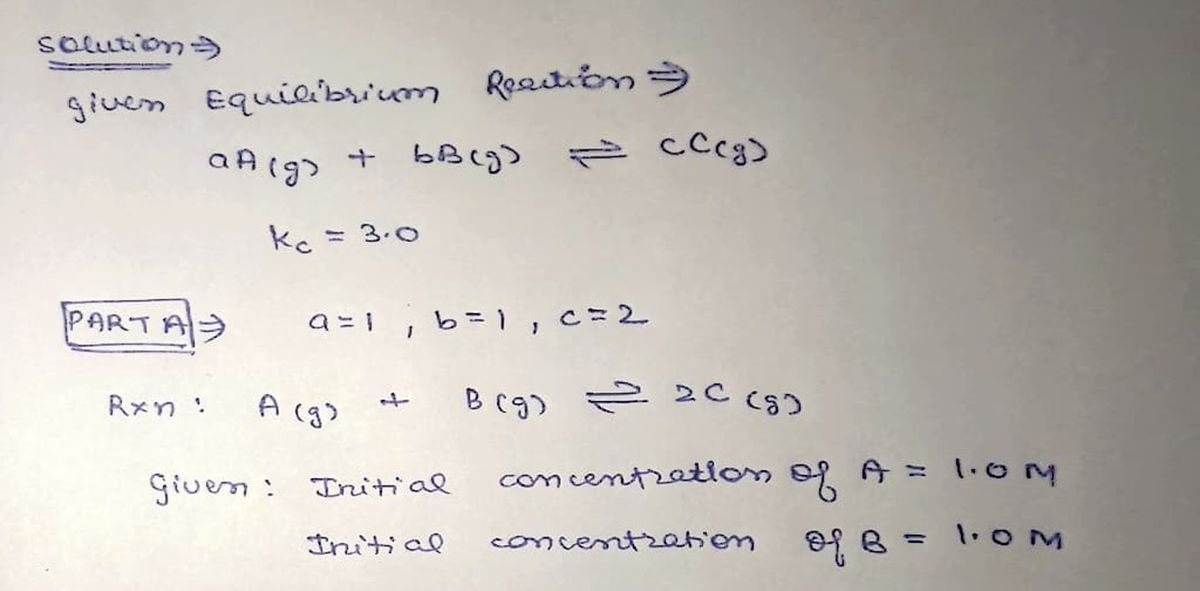 Solution ⇒
given Equilibrium Reaction ⇒
aA(g) + bB(g) ⇌ cC(g)
kc = 3.0
PART A ⇒ a=1, b=1, c=2
Rxn: A(g) + B(g) ⇌ 2C(g)
Given: Initial concentration of A = 1.0 M
Initial concentration of B = 1.0 M